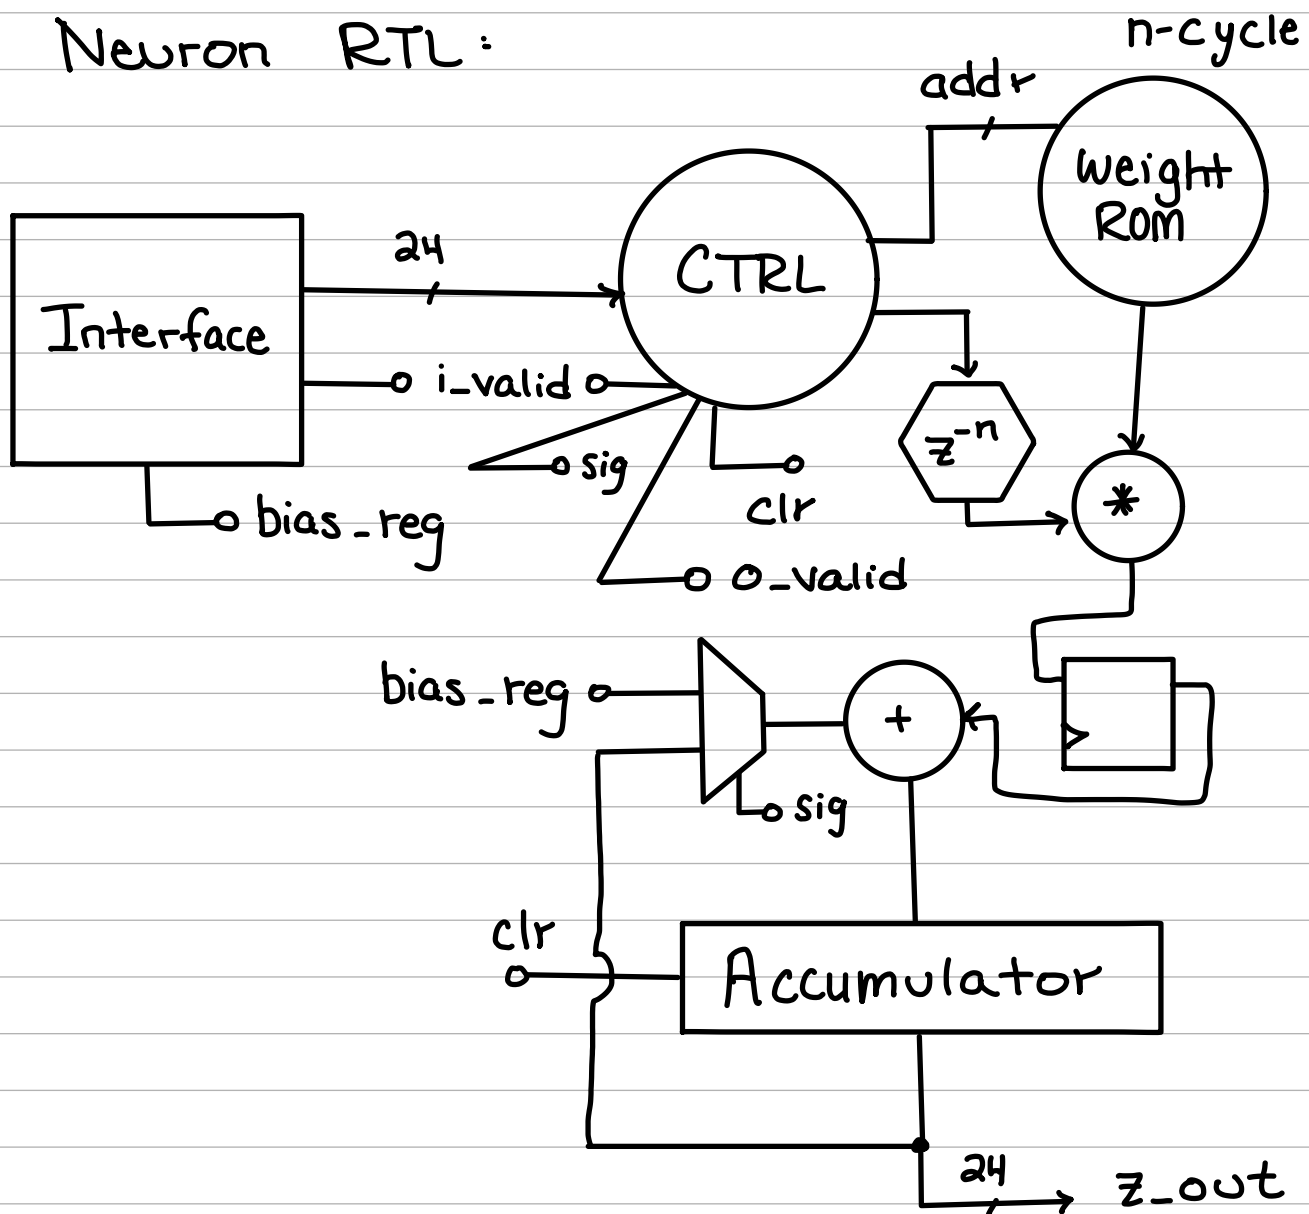 Neuron RTL:
n-cycle
addr
Weight
ROM
24
CTRL
Interface
i_valid
z⁻ⁿ
sig
*
clr
bias_reg
o_valid
bias_reg
+
sig
clr
Accumulator
24
z_out